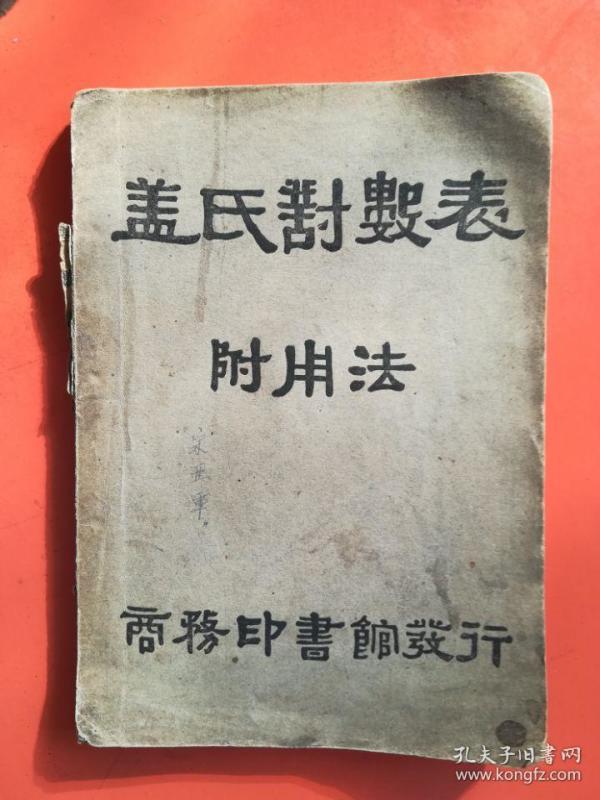 盖氏對數表
附用法
宋世軍
商務印書館發行
孔夫子旧書网
www.kongfz.com